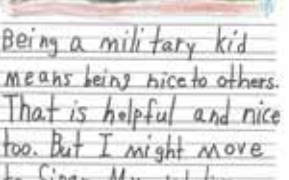 Being a military kid
means being nice to others.
That is helpful and nice
too. But I might move
to